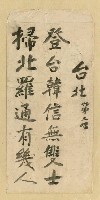 台北第一唱
登台韓信無雙士
掃北羅通有幾人